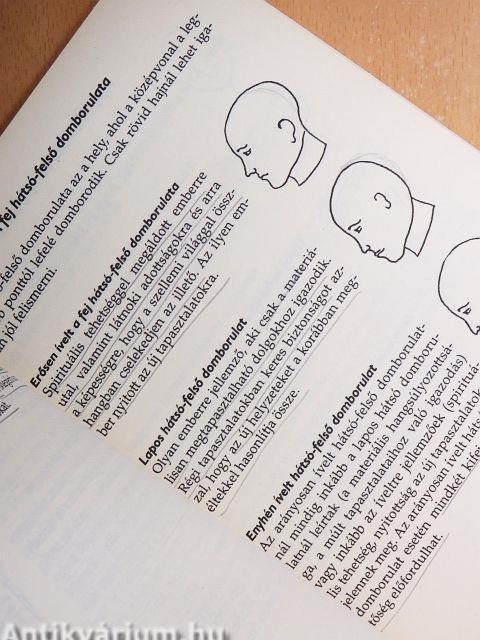 fej hátsó-felső domborulata
-felső domborulata az a hely, ahol a középvonal a leg-
ponttól lefelé domborodik. Csak rövid hajnál lehet iga-
jól felismerni.
Erősen ívelt a fej hátsó-felső domborulata
Spirituális tehetséggel megáldott emberre
utal, valamint látnoki adottságokra és arra
a képességre, hogy a szellemi világgal össz-
hangban cselekedjen az illető. Az ilyen em-
ber nyitott az új tapasztalatokra.
Lapos hátsó-felső domborulat
Olyan emberre jellemző, aki csak a materiá-
lisan megtapasztalható dolgokhoz igazodik.
Régi tapasztalatokban keres biztonságot az-
zal, hogy az új helyzeteket a korábban meg-
éltekkel hasonlítja össze.
Enyhén ívelt hátsó-felső domborulat
Az arányosan ívelt hátsó-felső domborulat-
nál mindig inkább a lapos hátsó domboru-
latnál leírtak (a materiális hangsúlyozottsá-
ga, a múlt tapasztalataihoz való igazodás)
vagy inkább az íveltre jellemzőek (spirituá-
lis tehetség nyitottság az új tapasztalatok
jelennek meg. Az arányosan ívelt
domborulat esetén mindkét
tőség előfordulhat.
Antikvárium.hu